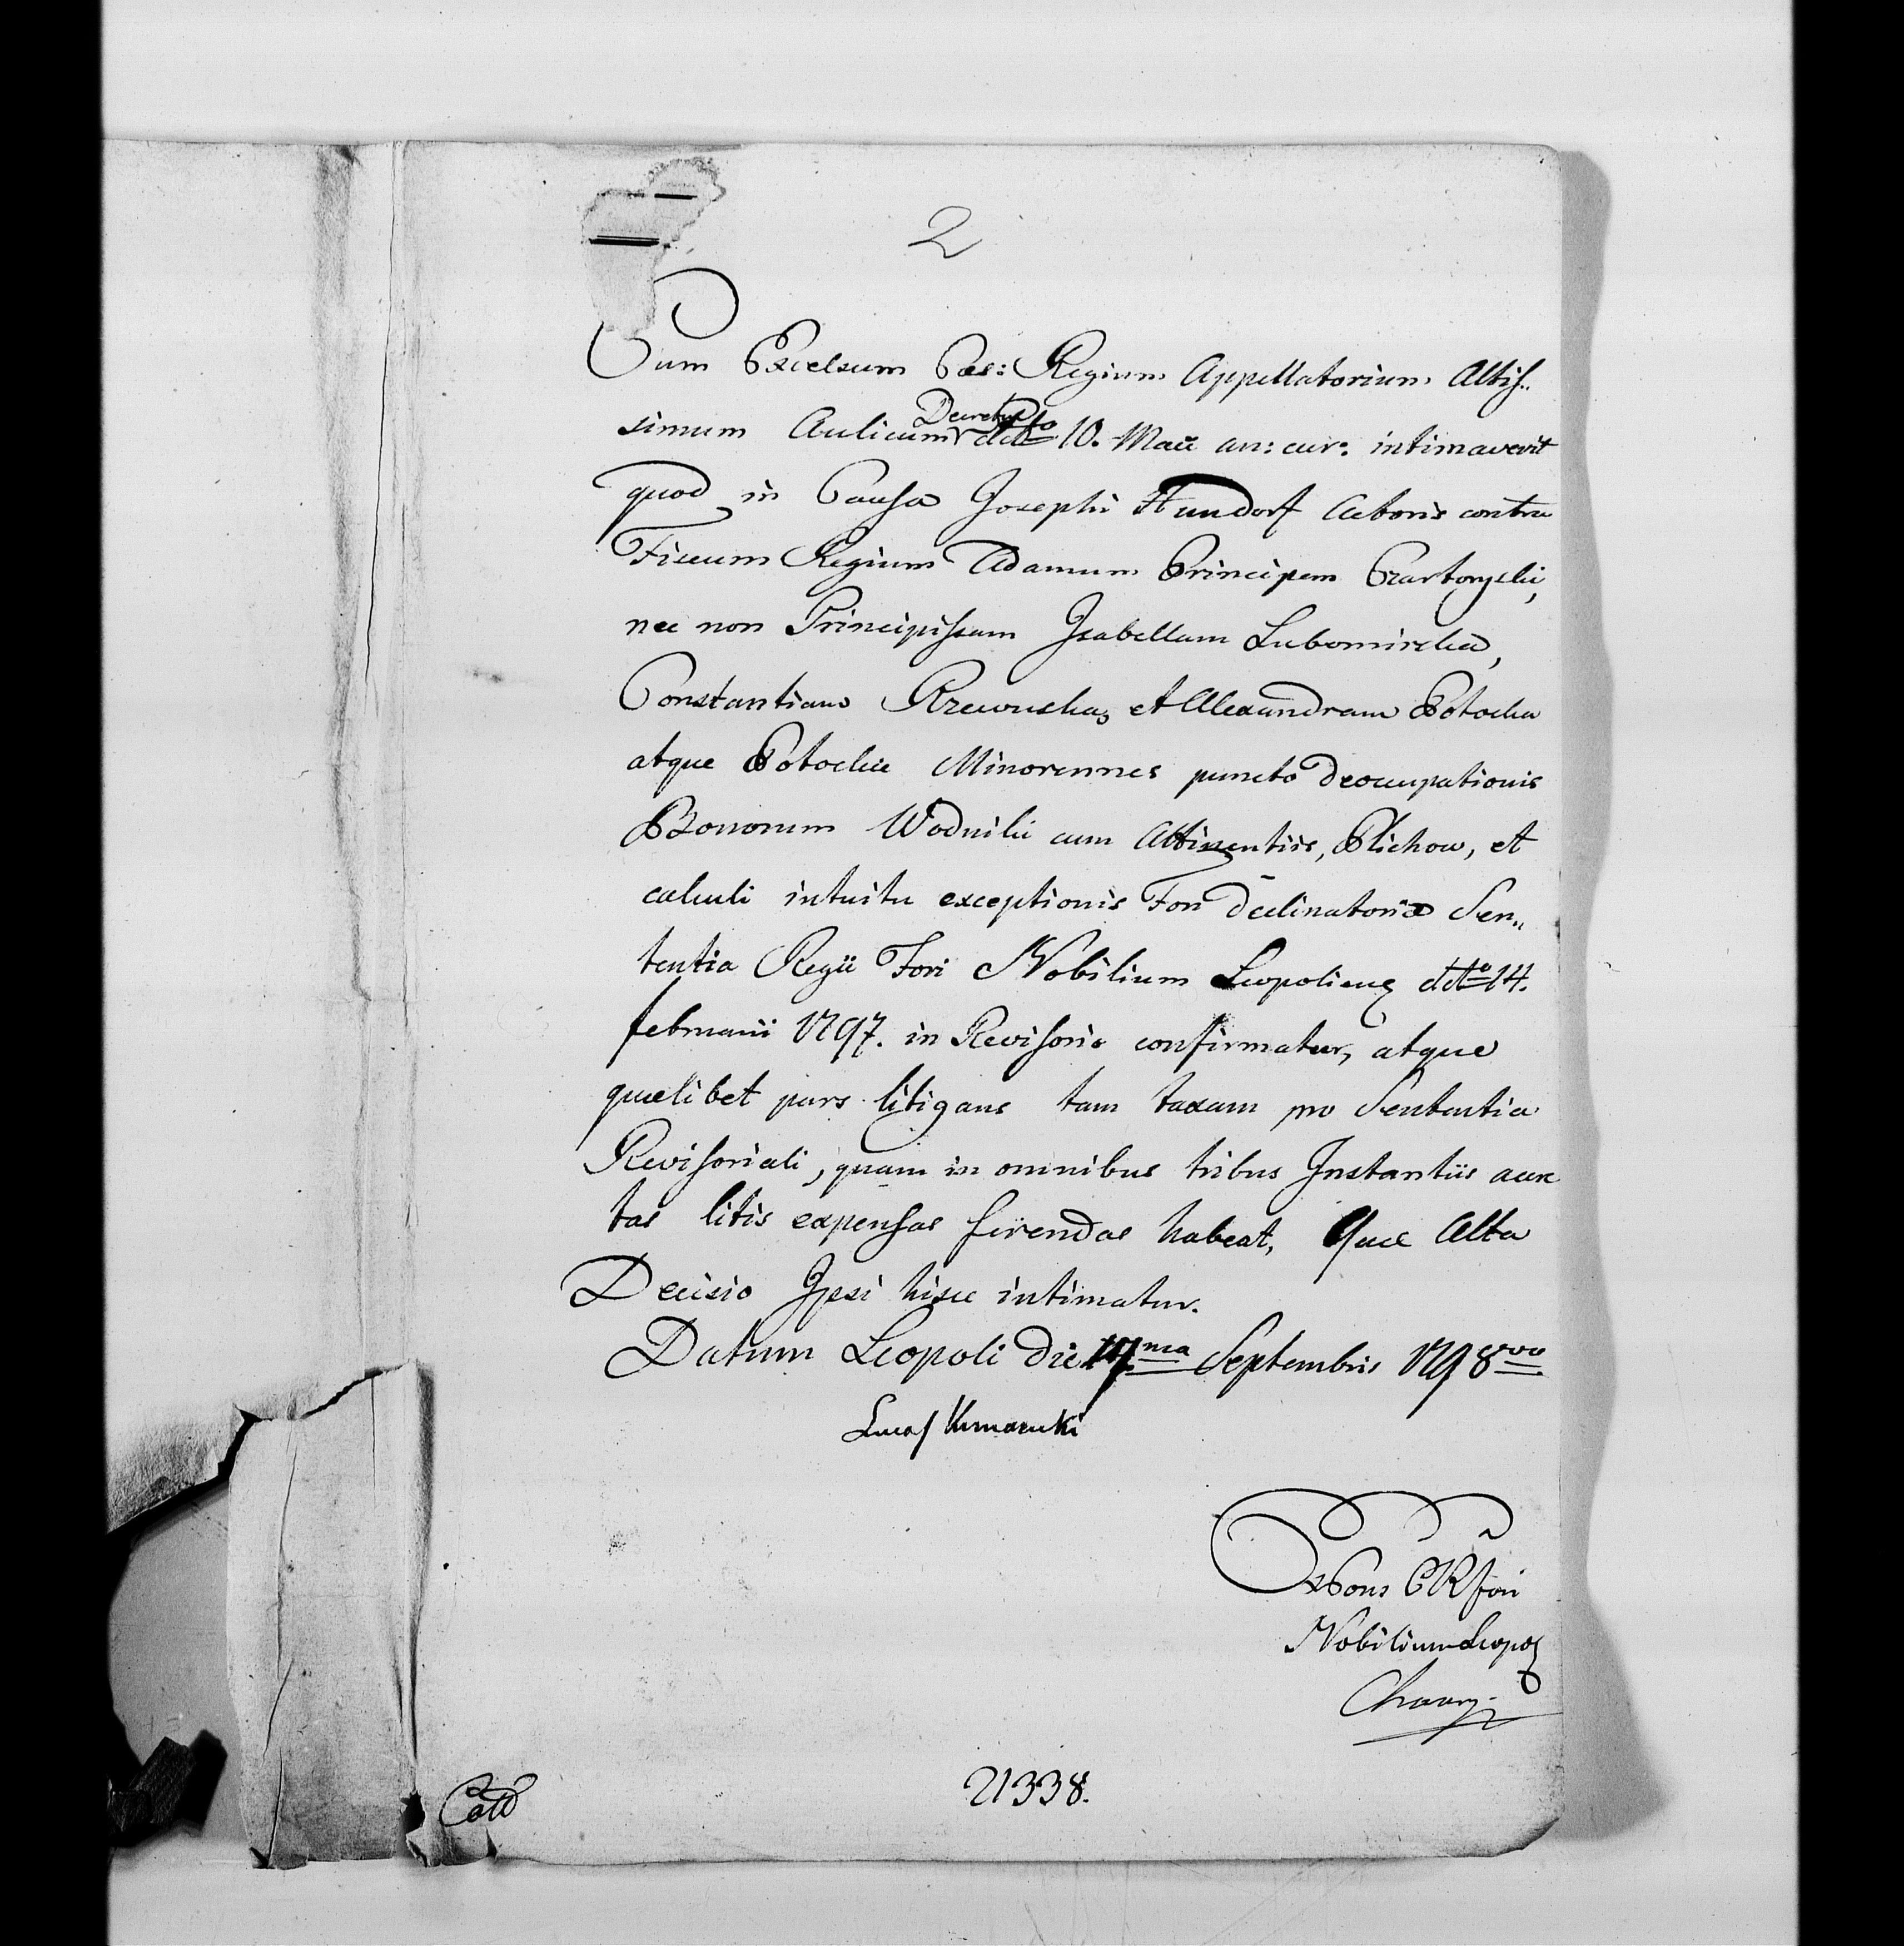 2
Cum Excelsum Cæs: Regium Appellatorium Altis-
simum Aulicum Decretum ddto 10. Maii an: cur: intimaverit
quod in Causa Josephi Hundorf Actoris contra
Fiscum Regium Adamum Principem Czartoryski,
nec non Principissam Isabellam Lubomirska,
Constantiam Rzewuska, et Alexandram Potocka
atque Potockie Minorennes puncto deoccupationis
Bonorum Wodniki cum Attinentiis, Plichow, et
calculi intuitu exceptionis Fori declinatoriæ Sen„
tentia Regii Fori Nobilium Leopoliens ddto 14.
februarii 1797. in Revisorio confirmatur, atque
quælibet pars litigans tam taxam pro Sententia
Revisoriali, quam in omnibus tribus Instantiis aux
tas litis expensas ferendas habeat, Quæ Alta
Decisio Ipsi hisce intimatur.
Datum Leopoli die 17ma Septembris 1798vo
Lucas
Ex Cons C R fori
Nobilium Leopol
21338.